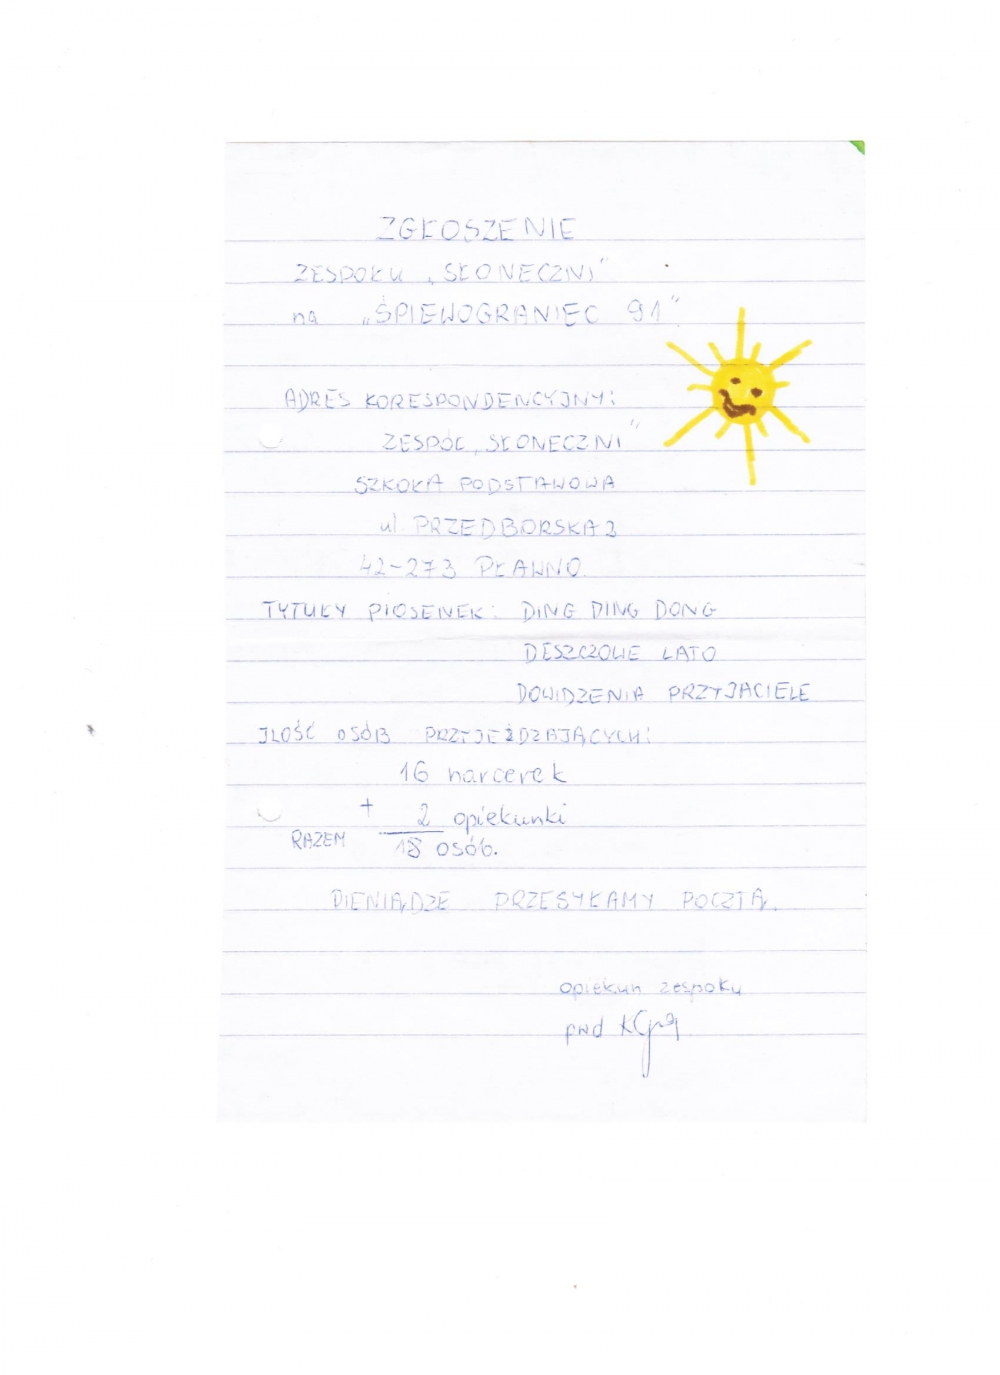 ZGŁOSZENIE
ZESPOŁU „SŁONECZNI"
na „ŚPIEWOGRANIEC 91"
ADRES KORESPONDENCYJNY:
ZESPÓŁ „SŁONECZNI"
SZKOŁA PODSTAWOWA
ul. PRZEDBORSKA
42-273 PŁAWNO.
TYTUŁY PIOSENEK: DING DING DONG
DESZCZOWE LATO
DOWIDZENIA PRZYJACIELE
ILOŚĆ OSÓB PRZYJEŻDZAJĄCYCH:
16 harcerek
+ 2 opiekunki
RAZEM 18 osób.
PIENIĄDZE PRZESYŁAMY POCZTĄ.
opiekun zespołu
pwd